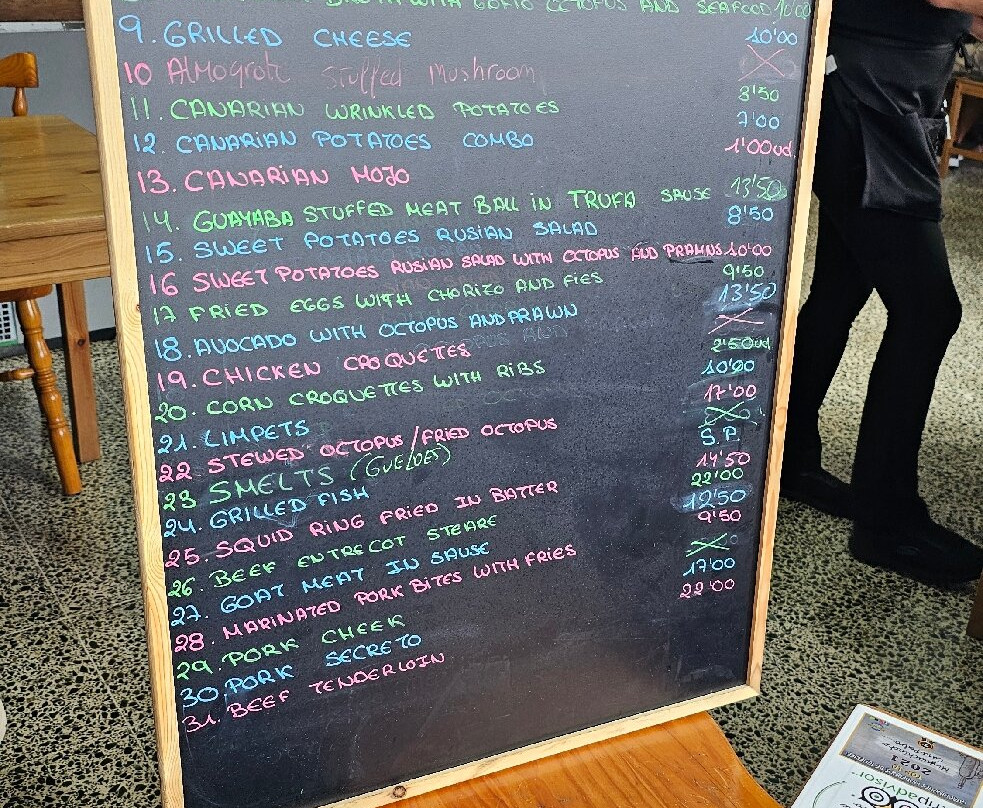 BROTH WITH GOFIO OCTOPUS AND SEAFOOD 10'00
9. GRILLED CHEESE 10'00
10 Almogrote Stuffed Mushroom
11. CANARIAN WRINKLED POTATOES 3'50
12. CANARIAN POTATOES COMBO 7'00
13. CANARIAN MOJO 1'00ud.
14. GUAYABA STUFFED MEAT BALL IN TRUFA SAUSE 13'50
15. SWEET POTATOES RUSIAN SALAD 8'50
16 SWEET POTATOES RUSIAN SALAD WITH OCTOPUS AND PRAWNS 10'00
17 FRIED EGGS WITH CHORIZO AND FIES 9'50
18. AVOCADO WITH OCTOPUS AND PRAWN 13'50
19. CHICKEN CROQUETTES
20. CORN CROQUETTES WITH RIBS 2'50ud
21. LIMPETS 10'00
22 STEWED OCTOPUS/FRIED OCTOPUS 17'00
23 SMELTS (GUELDES)
24. GRILLED FISH S.P.
25. SQUID RING FRIED IN BATTER 14'50
26 BEEF ENTRECOT STEAKE 22'00
27. GOAT MEAT IN SAUSE 12'50
28. MARINATED PORK BITES WITH FRIES 9'50
29. PORK CHEEK
30. PORK SECRETO 17'00
31. BEEF TENDERLOIN 22'00
2021